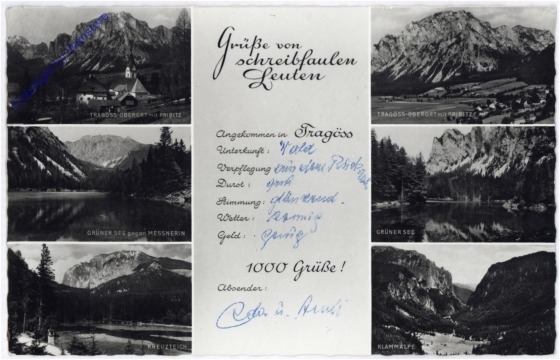 Grüße von
schreibfaulen
Leuten
TRAGÖSS-OBERORT mit PRIBITZ
TRAGÖSS-OBERORT mit PRIBITZ
Angekommen in Tragöss
Unterkunft: Wald
Verpflegung aus dem
Durst: groß
Stimmung: glänzend.
Wetter: sonnig
Geld: genug
GRÜNER SEE gegen MESSNERIN
GRÜNER SEE
1000 Grüße!
Absender:
u.
KREUZTEICH
KLAMMALPE